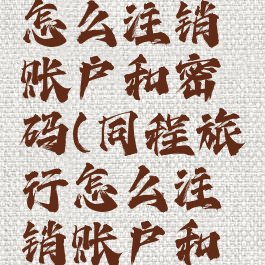 怎么注销
账户和密
码(同程旅
行怎么注
销账户和